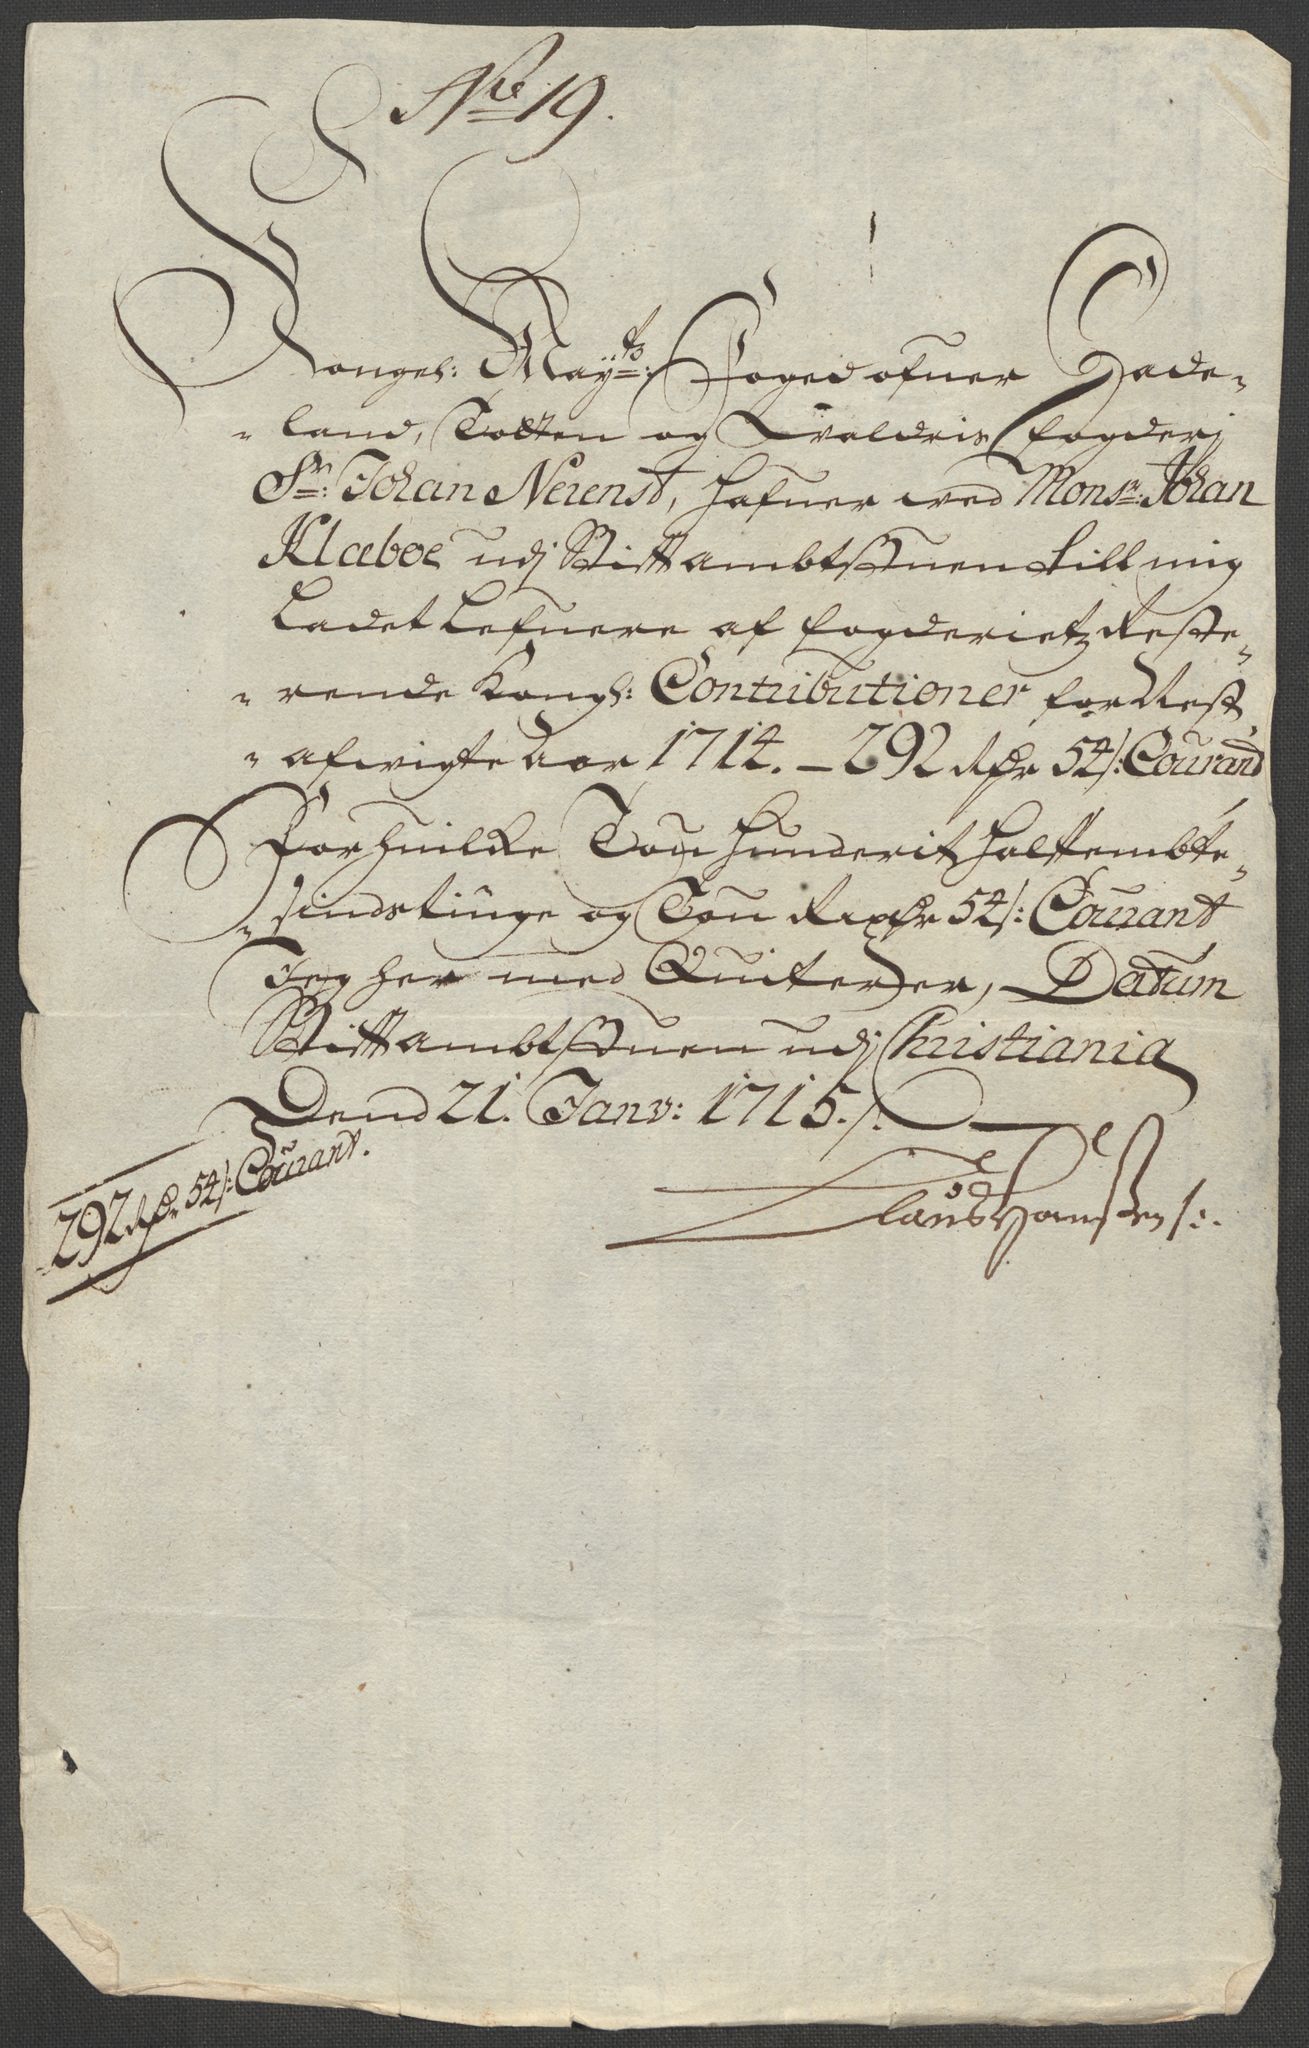 No 19.
Kongel: Mayts: Foged ofuer Hade-
land, Totten og Waldris fogderj
Sr: Johan Neienst, hafuer wed Monsr: Johan
Klæboe udj Stiftambtstuen till mig
Ladet Lefuere af fogderietz Reste-
rende Kongl: Contributioner for Nest
afwigte Aar 1714. — 292 Rdr 54 s: Courand
For huilke Tou hunderit halftembte-
sindstiuge og Tou Rixdr 54 s: Courant
Jeg her med Quiterer, Datum
Stiftambtstuen udj Christiania
Dend 21. Janv: 1715.
292 Rdr 54 s: Courant.
Claus Hanssen